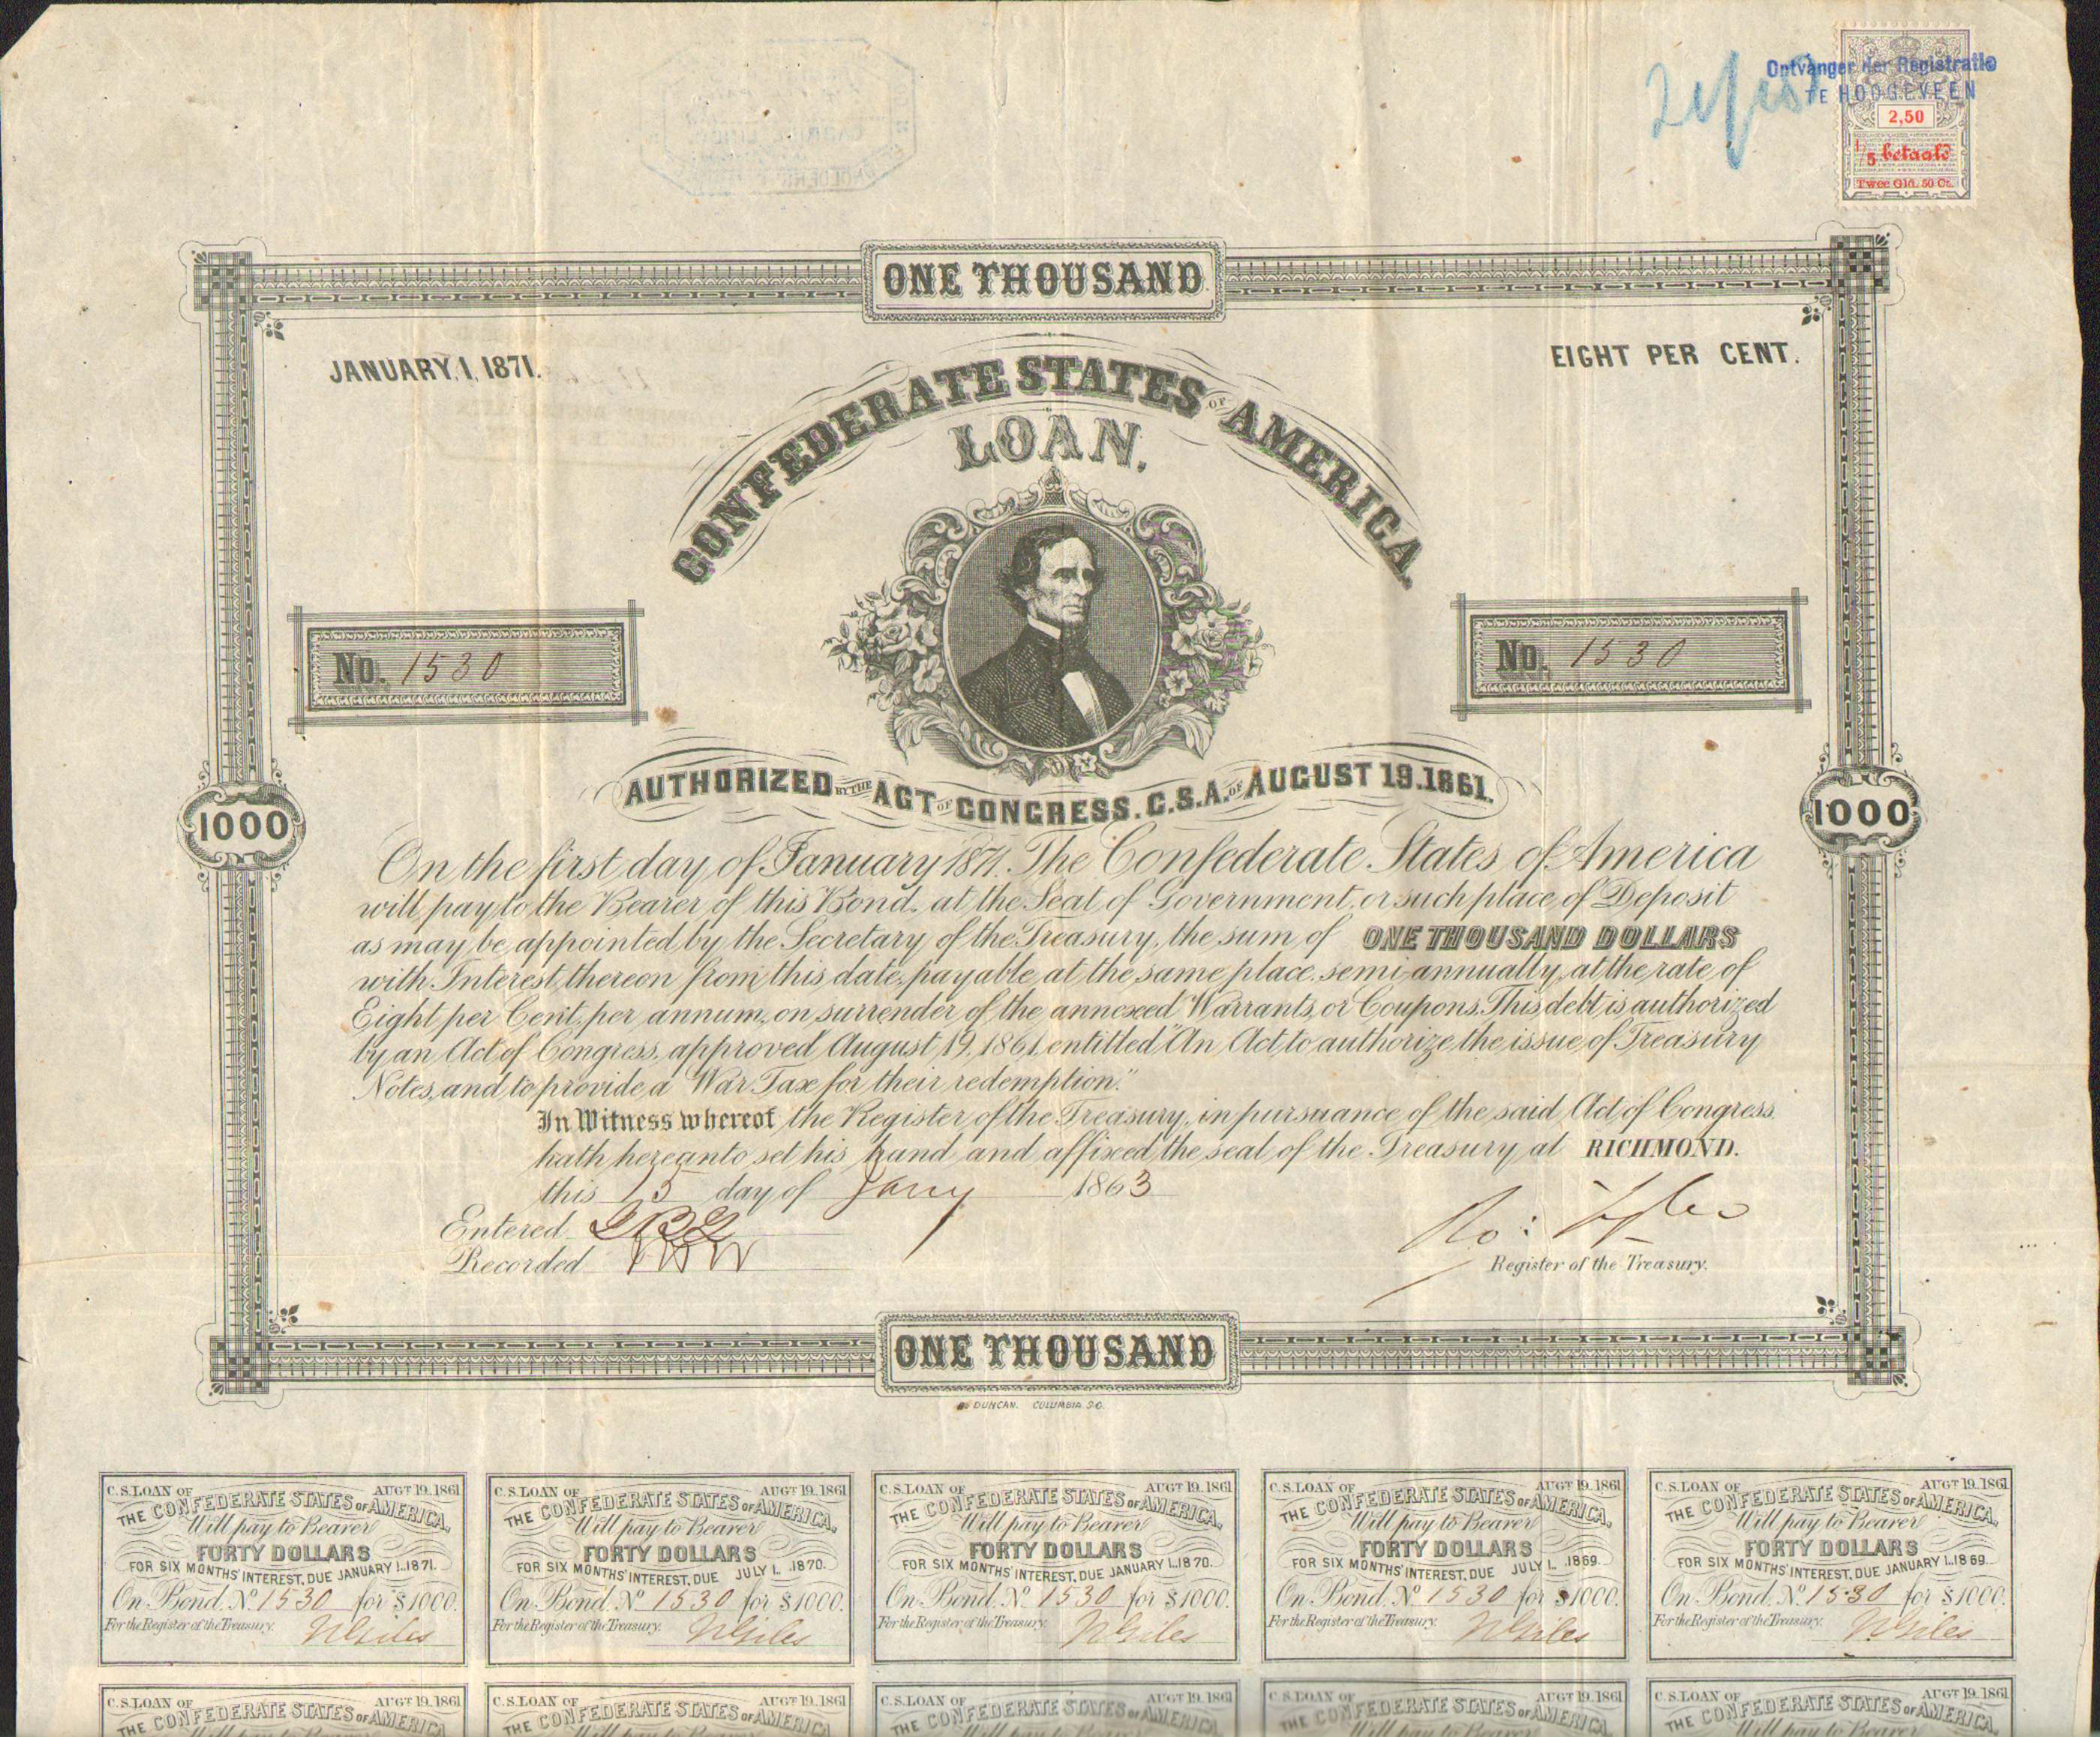 Ontvanger der Registratie
TE HOOGEVEEN
2,50
1/5 betaald
Twee Gld. 50 Ct.
ONE THOUSAND
JANUARY, 1, 1871.
EIGHT PER CENT.
CONFEDERATE STATES OF AMERICA.
LOAN.
No. 1530
No. 1530
AUTHORIZED BY THE ACT OF CONGRESS. C.S.A. OF AUGUST 19. 1861.
1000
1000
On the first day of January 1871. The Confederate States of America
will pay to the Bearer of this Bond, at the Seat of Government, or such place of Deposit
as may be appointed by the Secretary of the Treasury, the sum of ONE THOUSAND DOLLARS
with Interest thereon from this date, payable at the same place semi-annually, at the rate of
Eight per Cent. per annum, on surrender of the annexed Warrants, or Coupons. This debt is authorized
by an Act of Congress, approved August 19, 1861, entitled "An Act to authorize the issue of Treasury
Notes, and to provide a War Tax for their redemption."
In Witness whereof the Register of the Treasury, in pursuance of the said Act of Congress.
hath hereunto set his hand and affixed the seal of the Treasury at RICHMOND.
this 15 day of Jany 1863
Entered
Recorded
Ro: Tyler
Register of the Treasury.
ONE THOUSAND
DUNCAN. COLUMBIA S.C.
C.S.LOAN OF AUGT 19. 1861
THE CONFEDERATE STATES OF AMERICA,
Will pay to Bearer
FORTY DOLLARS
FOR SIX MONTHS' INTEREST, DUE JANUARY 1..1871.
On Bond. No 1530 for $1000.
For the Register of the Treasury.
C.S.LOAN OF AUGT 19. 1861
THE CONFEDERATE STATES OF AMERICA,
Will pay to Bearer
FORTY DOLLARS
FOR SIX MONTHS' INTEREST, DUE JULY 1.. 1870.
On Bond. No 1530 for $1000.
For the Register of the Treasury.
C.S.LOAN OF AUGT 19. 1861
THE CONFEDERATE STATES OF AMERICA,
Will pay to Bearer
FORTY DOLLARS
FOR SIX MONTHS' INTEREST, DUE JANUARY 1..1870.
On Bond. No 1530 for $1000.
For the Register of the Treasury.
C.S.LOAN OF AUGT 19. 1861
THE CONFEDERATE STATES OF AMERICA,
Will pay to Bearer
FORTY DOLLARS
FOR SIX MONTHS' INTEREST, DUE JULY 1.. 1869.
On Bond. No 1530 for $1000.
For the Register of the Treasury.
C.S.LOAN OF AUGT 19. 1861
THE CONFEDERATE STATES OF AMERICA,
Will pay to Bearer
FORTY DOLLARS
FOR SIX MONTHS' INTEREST, DUE JANUARY 1..1869.
On Bond. No 1530 for $1000.
For the Register of the Treasury.
C.S.LOAN OF AUGT 19. 1861
THE CONFEDERATE STATES OF AMERICA
C.S.LOAN OF AUGT 19. 1861
THE CONFEDERATE STATES OF AMERICA
C.S.LOAN OF AUGT 19. 1861
THE CONFEDERATE STATES OF AMERICA
C.S.LOAN OF AUGT 19. 1861
THE CONFEDERATE STATES OF AMERICA
Will pay to Bearer
C.S.LOAN OF AUGT 19. 1861
THE CONFEDERATE STATES OF AMERICA,
Will pay to Bearer